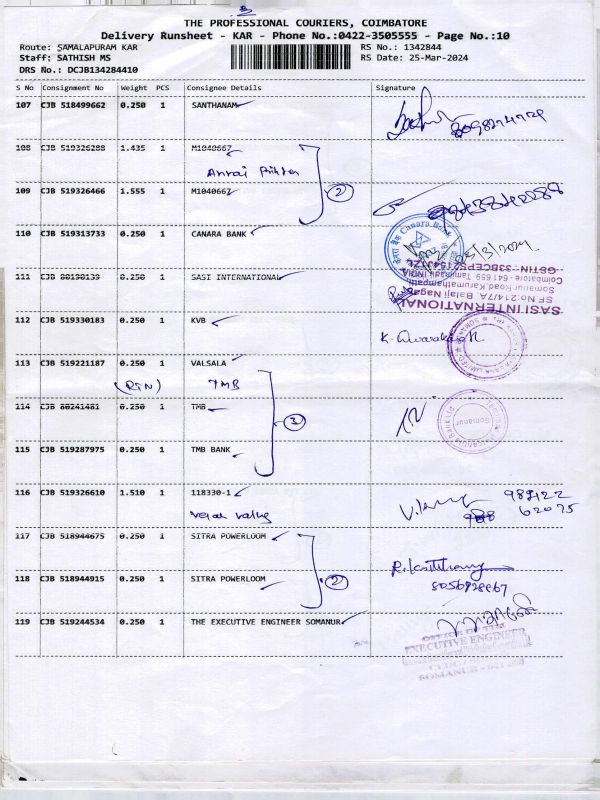 THE PROFESSIONAL COURIERS, COIMBATORE
Delivery Runsheet - KAR - Phone No.:0422-3505555 - Page No.:10
Route: SAMALAPURAM KAR
RS No.: 1342844
Staff: SATHISH MS
RS Date: 25-Mar-2024
DRS No.: DCJB134284410
S No Consignment No Weight PCS Consignee Details Signature
107 CJB 518499662 0.250 1 SANTHANAM
108 CJB 519326288 1.435 1 M1040667
109 CJB 519326466 1.555 1 M1040667
2
110 CJB 519313733 0.250 1 CANARA BANK
Canara Bank
111 CJB 80190139 0.250 1 SASI INTERNATIONAL
SASI INTERNATIONAL
SF No:214/7A Balaji Nagar,
Somanur Road Karumathampatti
Coimbatore - 641 659 Tamilnadu INDIA
112 CJB 519330183 0.250 1 KVB
113 CJB 519221187 0.250 1 VALSALA
(RTN) TMB
114 CJB 80241481 0.250 1 TMB
3
Somanur
115 CJB 519287975 0.250 1 TMB BANK
116 CJB 519326610 1.510 1 118330-1
989422
62075
117 CJB 518944675 0.250 1 SITRA POWERLOOM
118 CJB 518944915 0.250 1 SITRA POWERLOOM
2
119 CJB 519244534 0.250 1 THE EXECUTIVE ENGINEER SOMANUR
OFFICE OF THE
EXECUTIVE ENGINEER